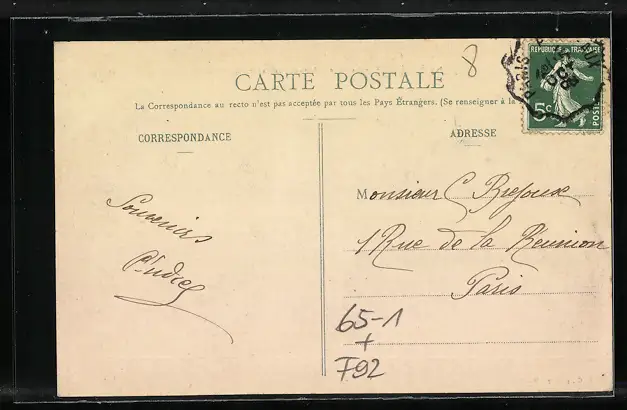 8
CARTE POSTALE
La Correspondance au recto n'est pas acceptée par tous les Pays Étrangers. (Se renseigner à la
CORRESPONDANCE
ADRESSE
REPUBLIQUE FRANÇAISE
5c
POSTES
PARIS
Souvenirs
Monsieur C Brejoux
1 Rue de la Réunion
Paris
65-1
+
F92